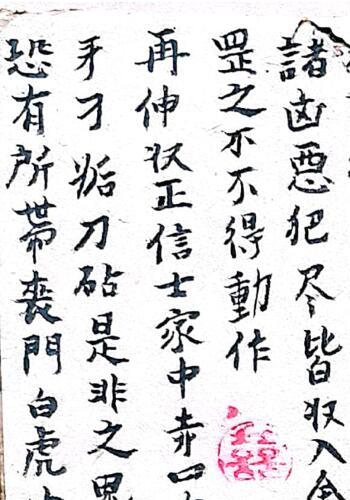 諸凶惡犯尽皆収入
罡之不不得動作
再伸状正信士家中赤口
牙刁妬刀砧是非之鬼
恐有所帯喪門白虎